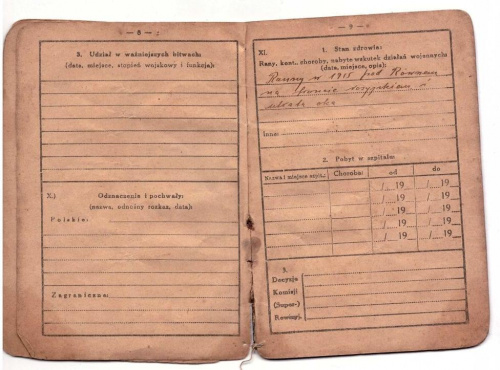 — 8 —
3. Udział w ważniejszych bitwach:
(data, miejsce, stopień wojskowy i funkcja):
X.) Odznaczenia i pochwały:
(nazwa, odnośny rozkaz, data):
Polskie:
Zagraniczne:
— 9 —
XI. 1. Stan zdrowia:
Rany, kont., choroby, nabyte wskutek działań wojennych
(data, miejsce, opis):
Ranny w 1915 pod Równem
na froncie rosyjskiem
utrata oka
Inne:
2. Pobyt w szpitalu:
Nazwa i miejsce szpit. Choroba: od do
/ 19 / 19
/ 19 / 19
/ 19 / 19
/ 19 / 19
/ 19 / 19
3.
Decyzja
Komisji
(Super-)
Rewizyj.